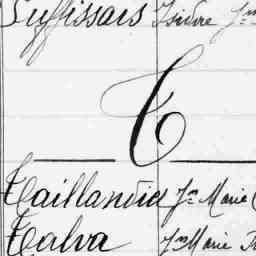 Suffissais Isidore Jn
T
Taillandier Jn Marie
Talva Jn Marie